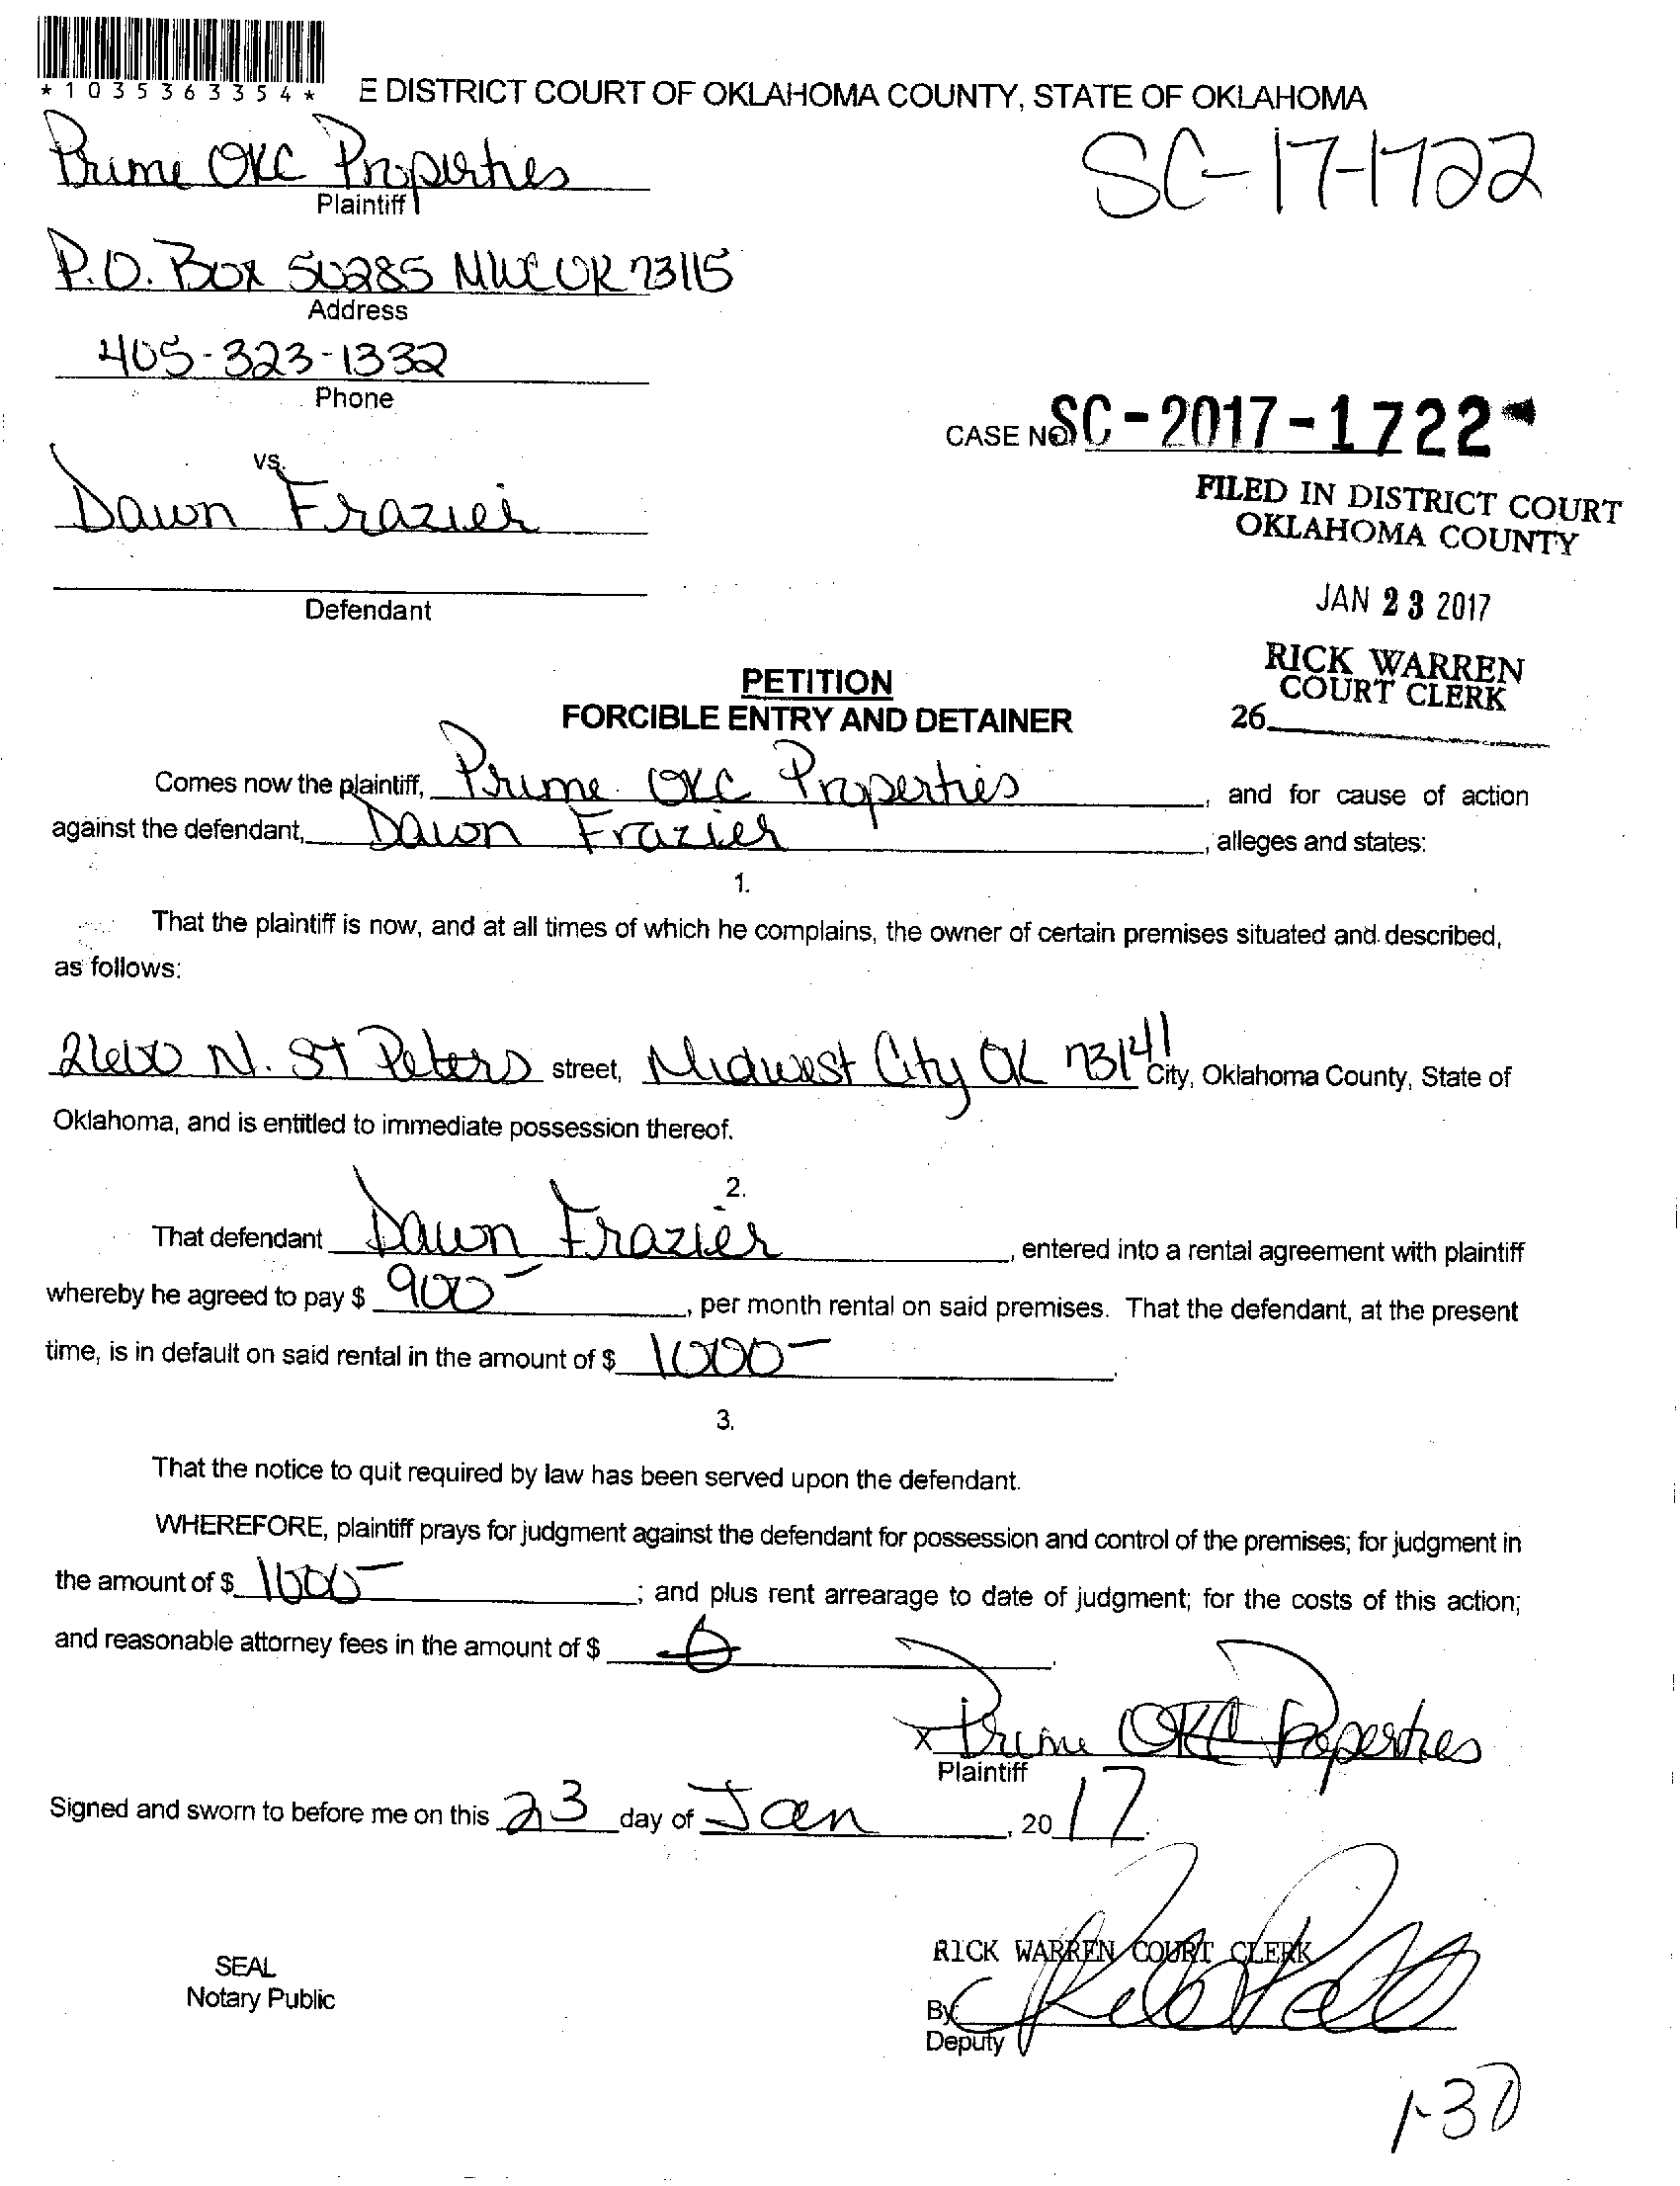 *1035363354*
E DISTRICT COURT OF OKLAHOMA COUNTY, STATE OF OKLAHOMA
Prime OKC Properties
Plaintiff
SC-17-1722
P.O. Box 50285 MWC OK 73115
Address
405-323-1332
Phone
CASE NO. SC-2017-1722
vs.
Dawn Frazier
FILED IN DISTRICT COURT
OKLAHOMA COUNTY
Defendant
JAN 23 2017
RICK WARREN
COURT CLERK
26
PETITION
FORCIBLE ENTRY AND DETAINER
Comes now the plaintiff, Prime OKC Properties, and for cause of action
against the defendant, Dawn Frazier, alleges and states:
1.
That the plaintiff is now, and at all times of which he complains, the owner of certain premises situated and described,
as follows:
2600 N. St Peters street, Midwest City OK 73141 City, Oklahoma County, State of
Oklahoma, and is entitled to immediate possession thereof.
2.
That defendant Dawn Frazier, entered into a rental agreement with plaintiff
whereby he agreed to pay $ 900-, per month rental on said premises. That the defendant, at the present
time, is in default on said rental in the amount of $ 1000-.
3.
That the notice to quit required by law has been served upon the defendant.
WHEREFORE, plaintiff prays for judgment against the defendant for possession and control of the premises; for judgment in
the amount of $ 1000-; and plus rent arrearage to date of judgment; for the costs of this action;
and reasonable attorney fees in the amount of $ 0.
x Prime OKC Properties
Plaintiff
Signed and sworn to before me on this 23 day of Jan, 2017.
RICK WARREN COURT CLERK
SEAL
Notary Public
By
Deputy
1-30